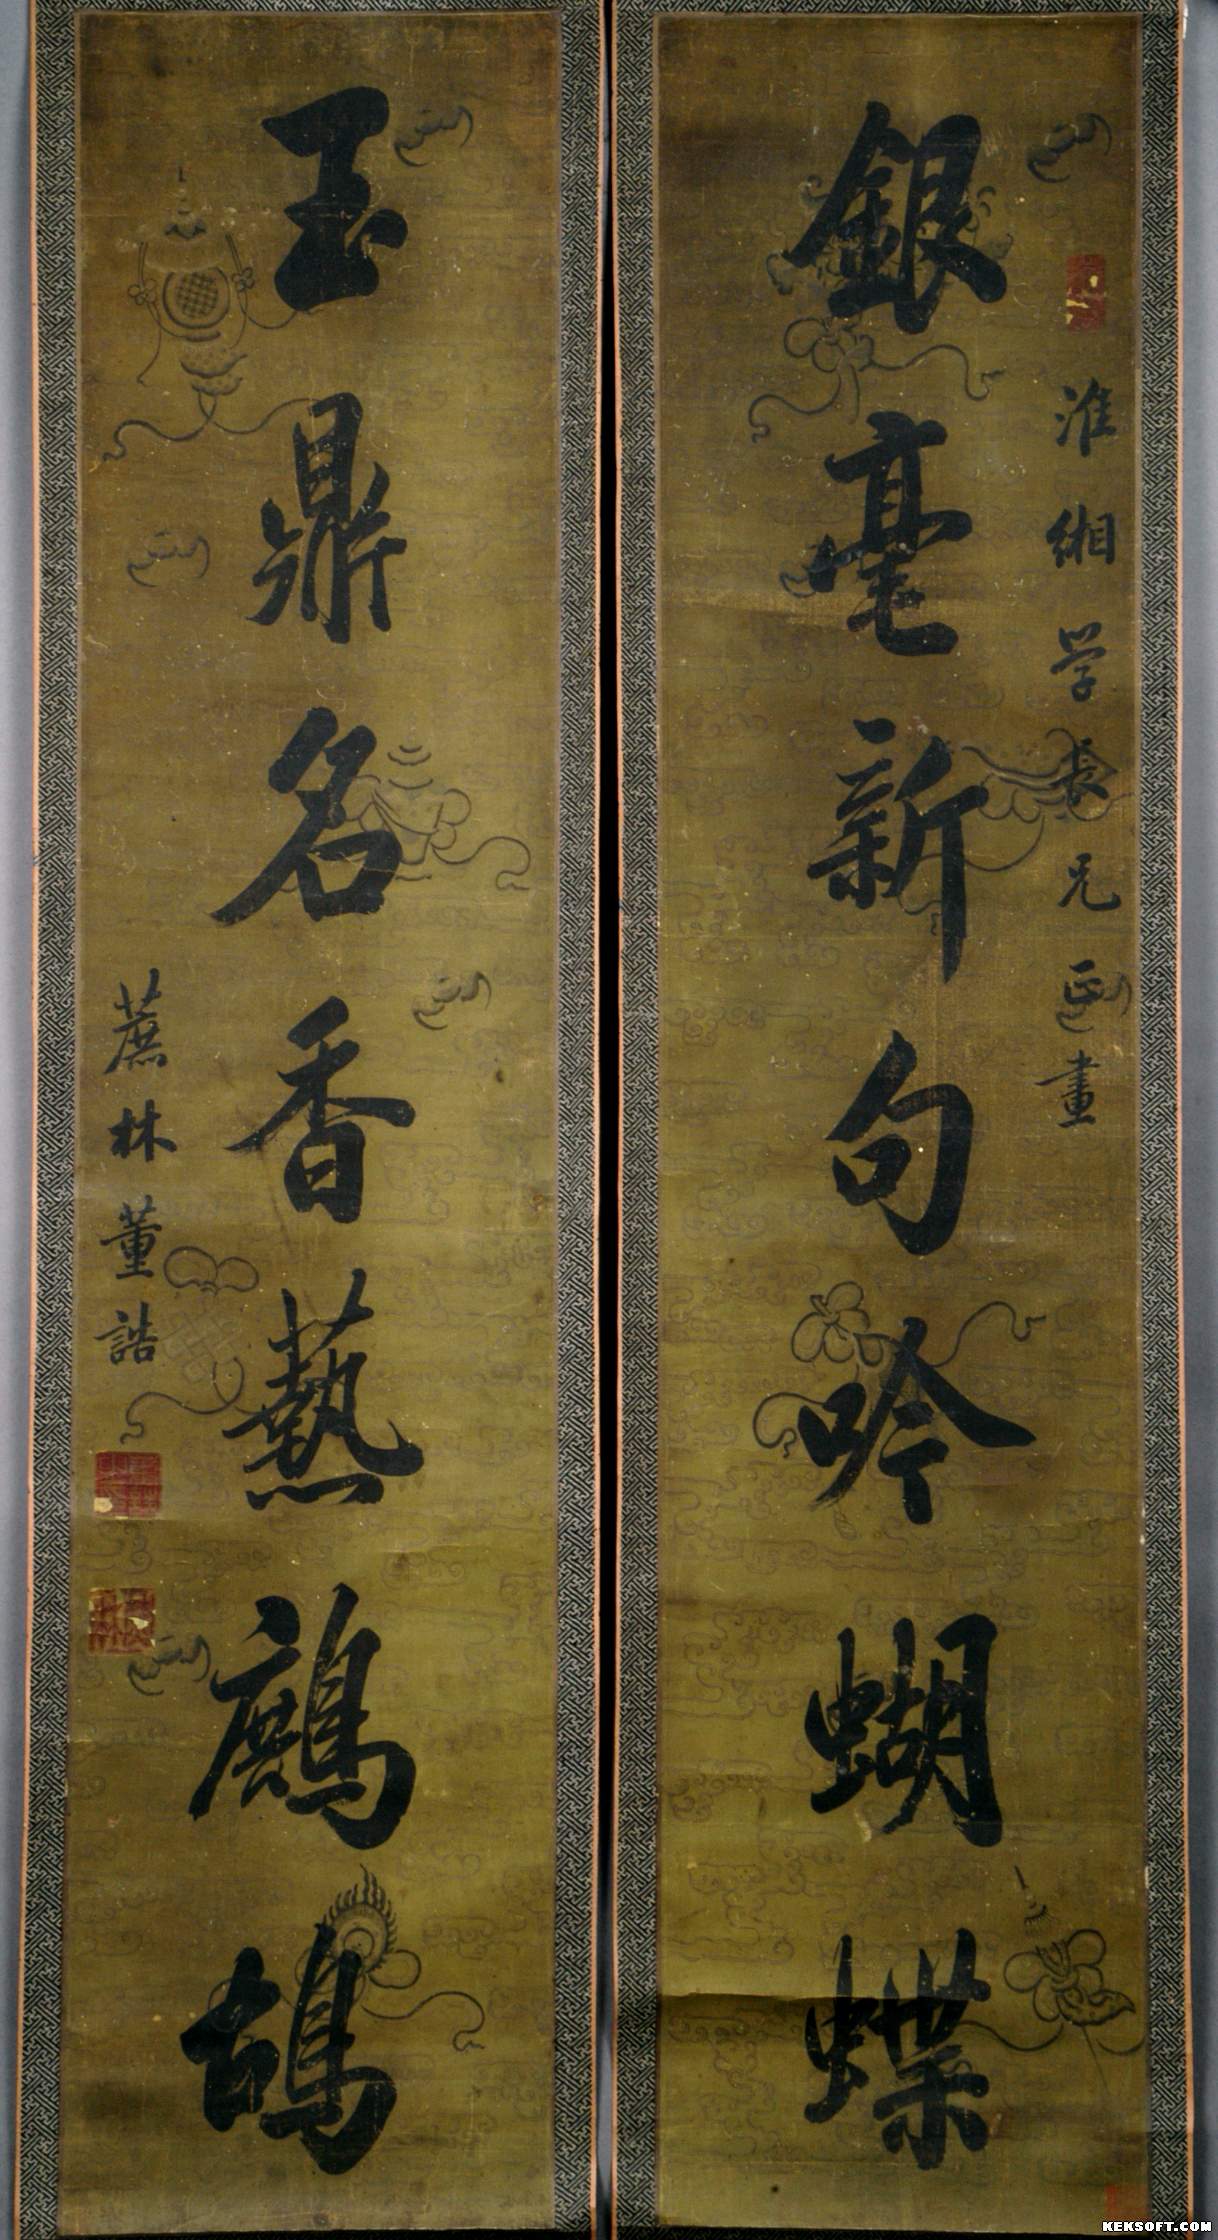 淮緗学長兄正畫
銀毫新句吟蝴蝶
玉鼎名香爇鷓鴣
蔗林董誥
KEKSOFT.COM